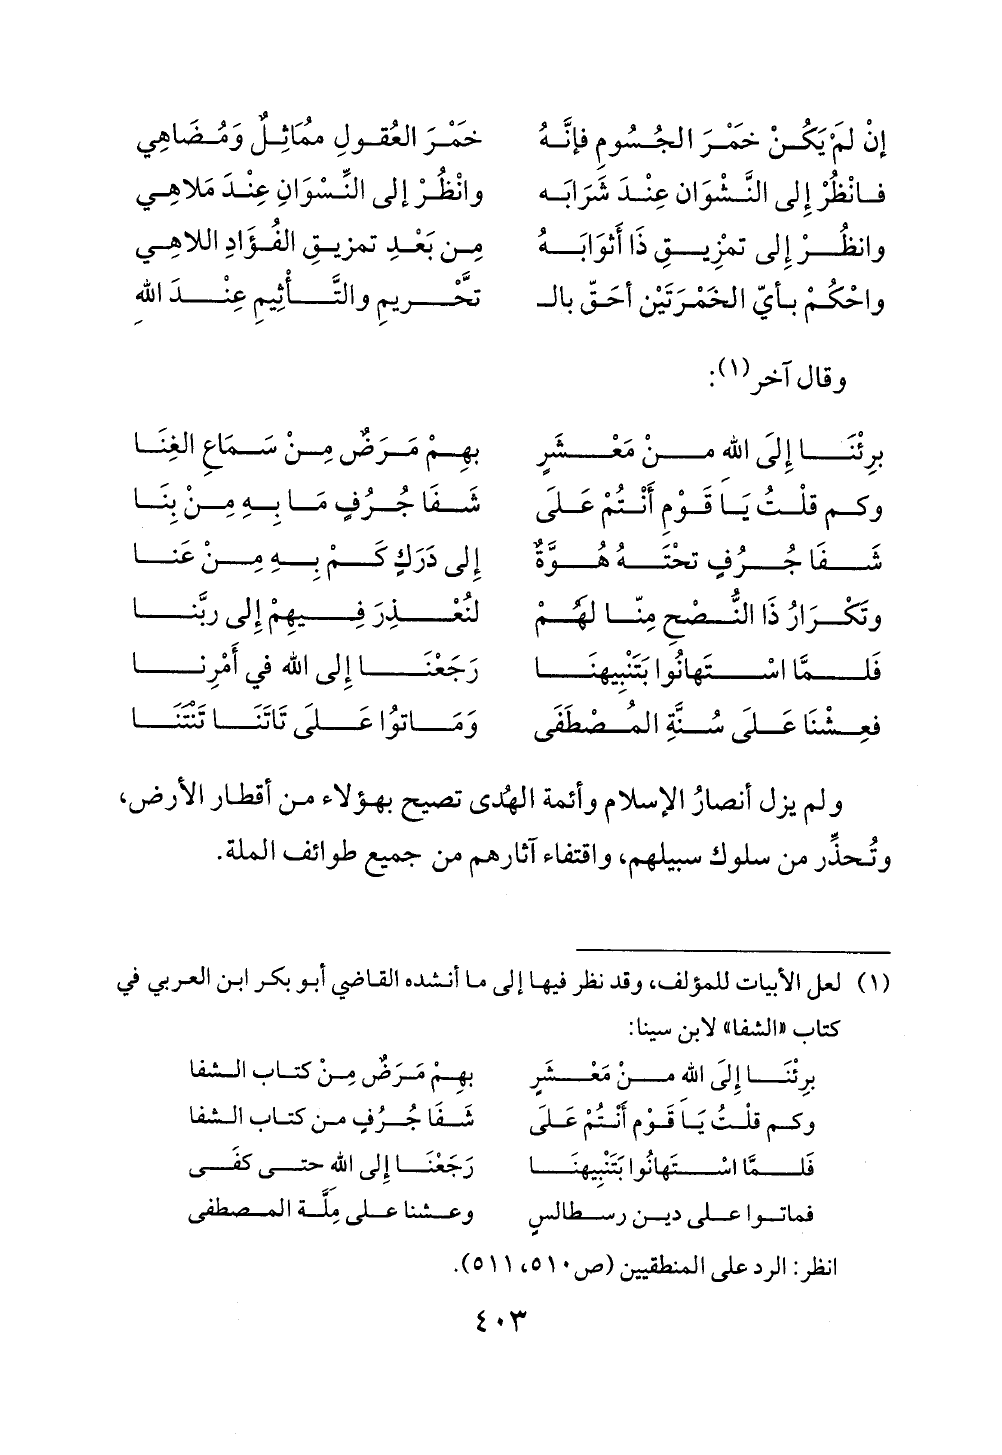 إنْ لَمْ يَكُنْ خَمْرَ الجُسُومِ فإنَّهُ خَمْرَ العُقولِ مُمَاثِلٌ وَمُضَاهِي
فانْظُرْ إلى النَّشْوَانِ عِنْدَ شَرَابَه وانْظُرْ إلى النِّسْوَانِ عِنْدَ مَلاهِي
وانظُرْ إلى تمْزِيقِ ذَا أثْوَابَهُ مِن بَعْدِ تمزيقِ الفُؤَادِ اللاهِي
واحْكُمْ بأيّ الخَمْرَتَيْن أحَقّ بالـ تَّحْرِيمِ والتَّأثِيمِ عِنْدَ اللهِ
وقال آخر(١):
برِئْنَا إلَى اللهِ مِنْ مَعْشَرٍ بهِمْ مَرَضٌ مِنْ سَمَاعِ الغِنَا
وكم قلْتُ يَا قَوْمِ أَنْتُمْ عَلَى شَفَا جُرُفٍ مَا بِهِ مِنْ بِنَا
شَفَا جُرُفٍ تحْتَهُ هُوَّةٌ إلى دَرَكٍ كَمْ بِهِ مِنْ عَنا
وتَكْرَارُ ذَا النُّصْحِ مِنّا لهُمْ لنُعْذِرَ فِيهِمْ إلى ربَّنا
فَلمَّا اسْتَهانُوا بتَنْبِيهنَا رَجَعْنَا إلى الله في أَمْرِنا
فعِشْنَا عَلَى سُنَّةِ المُصْطَفَى وَمَاتوُا عَلى تَاتَنَا تَنْتَنَا
ولم يزل أنصارُ الإسلام وأئمة الهُدى تصيح بهؤلاء من أقطار الأرض،
وتُحذِّر من سلوك سبيلهم، واقتفاء آثارهم من جميع طوائف الملة.
(١) لعل الأبيات للمؤلف، وقد نظر فيها إلى ما أنشده القاضي أبو بكر ابن العربي في
كتاب «الشفا» لابن سينا:
برِئْنَا إلَى اللهِ مِنْ مَعْشَرٍ بهِمْ مَرَضٌ مِنْ كتاب الشفا
وكم قلْتُ يَا قَوْمِ أَنْتُمْ عَلَى شَفَا جُرُفٍ من كتاب الشفا
فَلمَّا اسْتَهانُوا بتَنْبِيهنَا رَجَعْنَا إلى الله حتى كفَى
فماتوا على دين رسطالسٍ وعشنا على مِلَّة المصطفى
انظر: الرد على المنطقيين (ص٥١٠، ٥١١).
٤٠٣